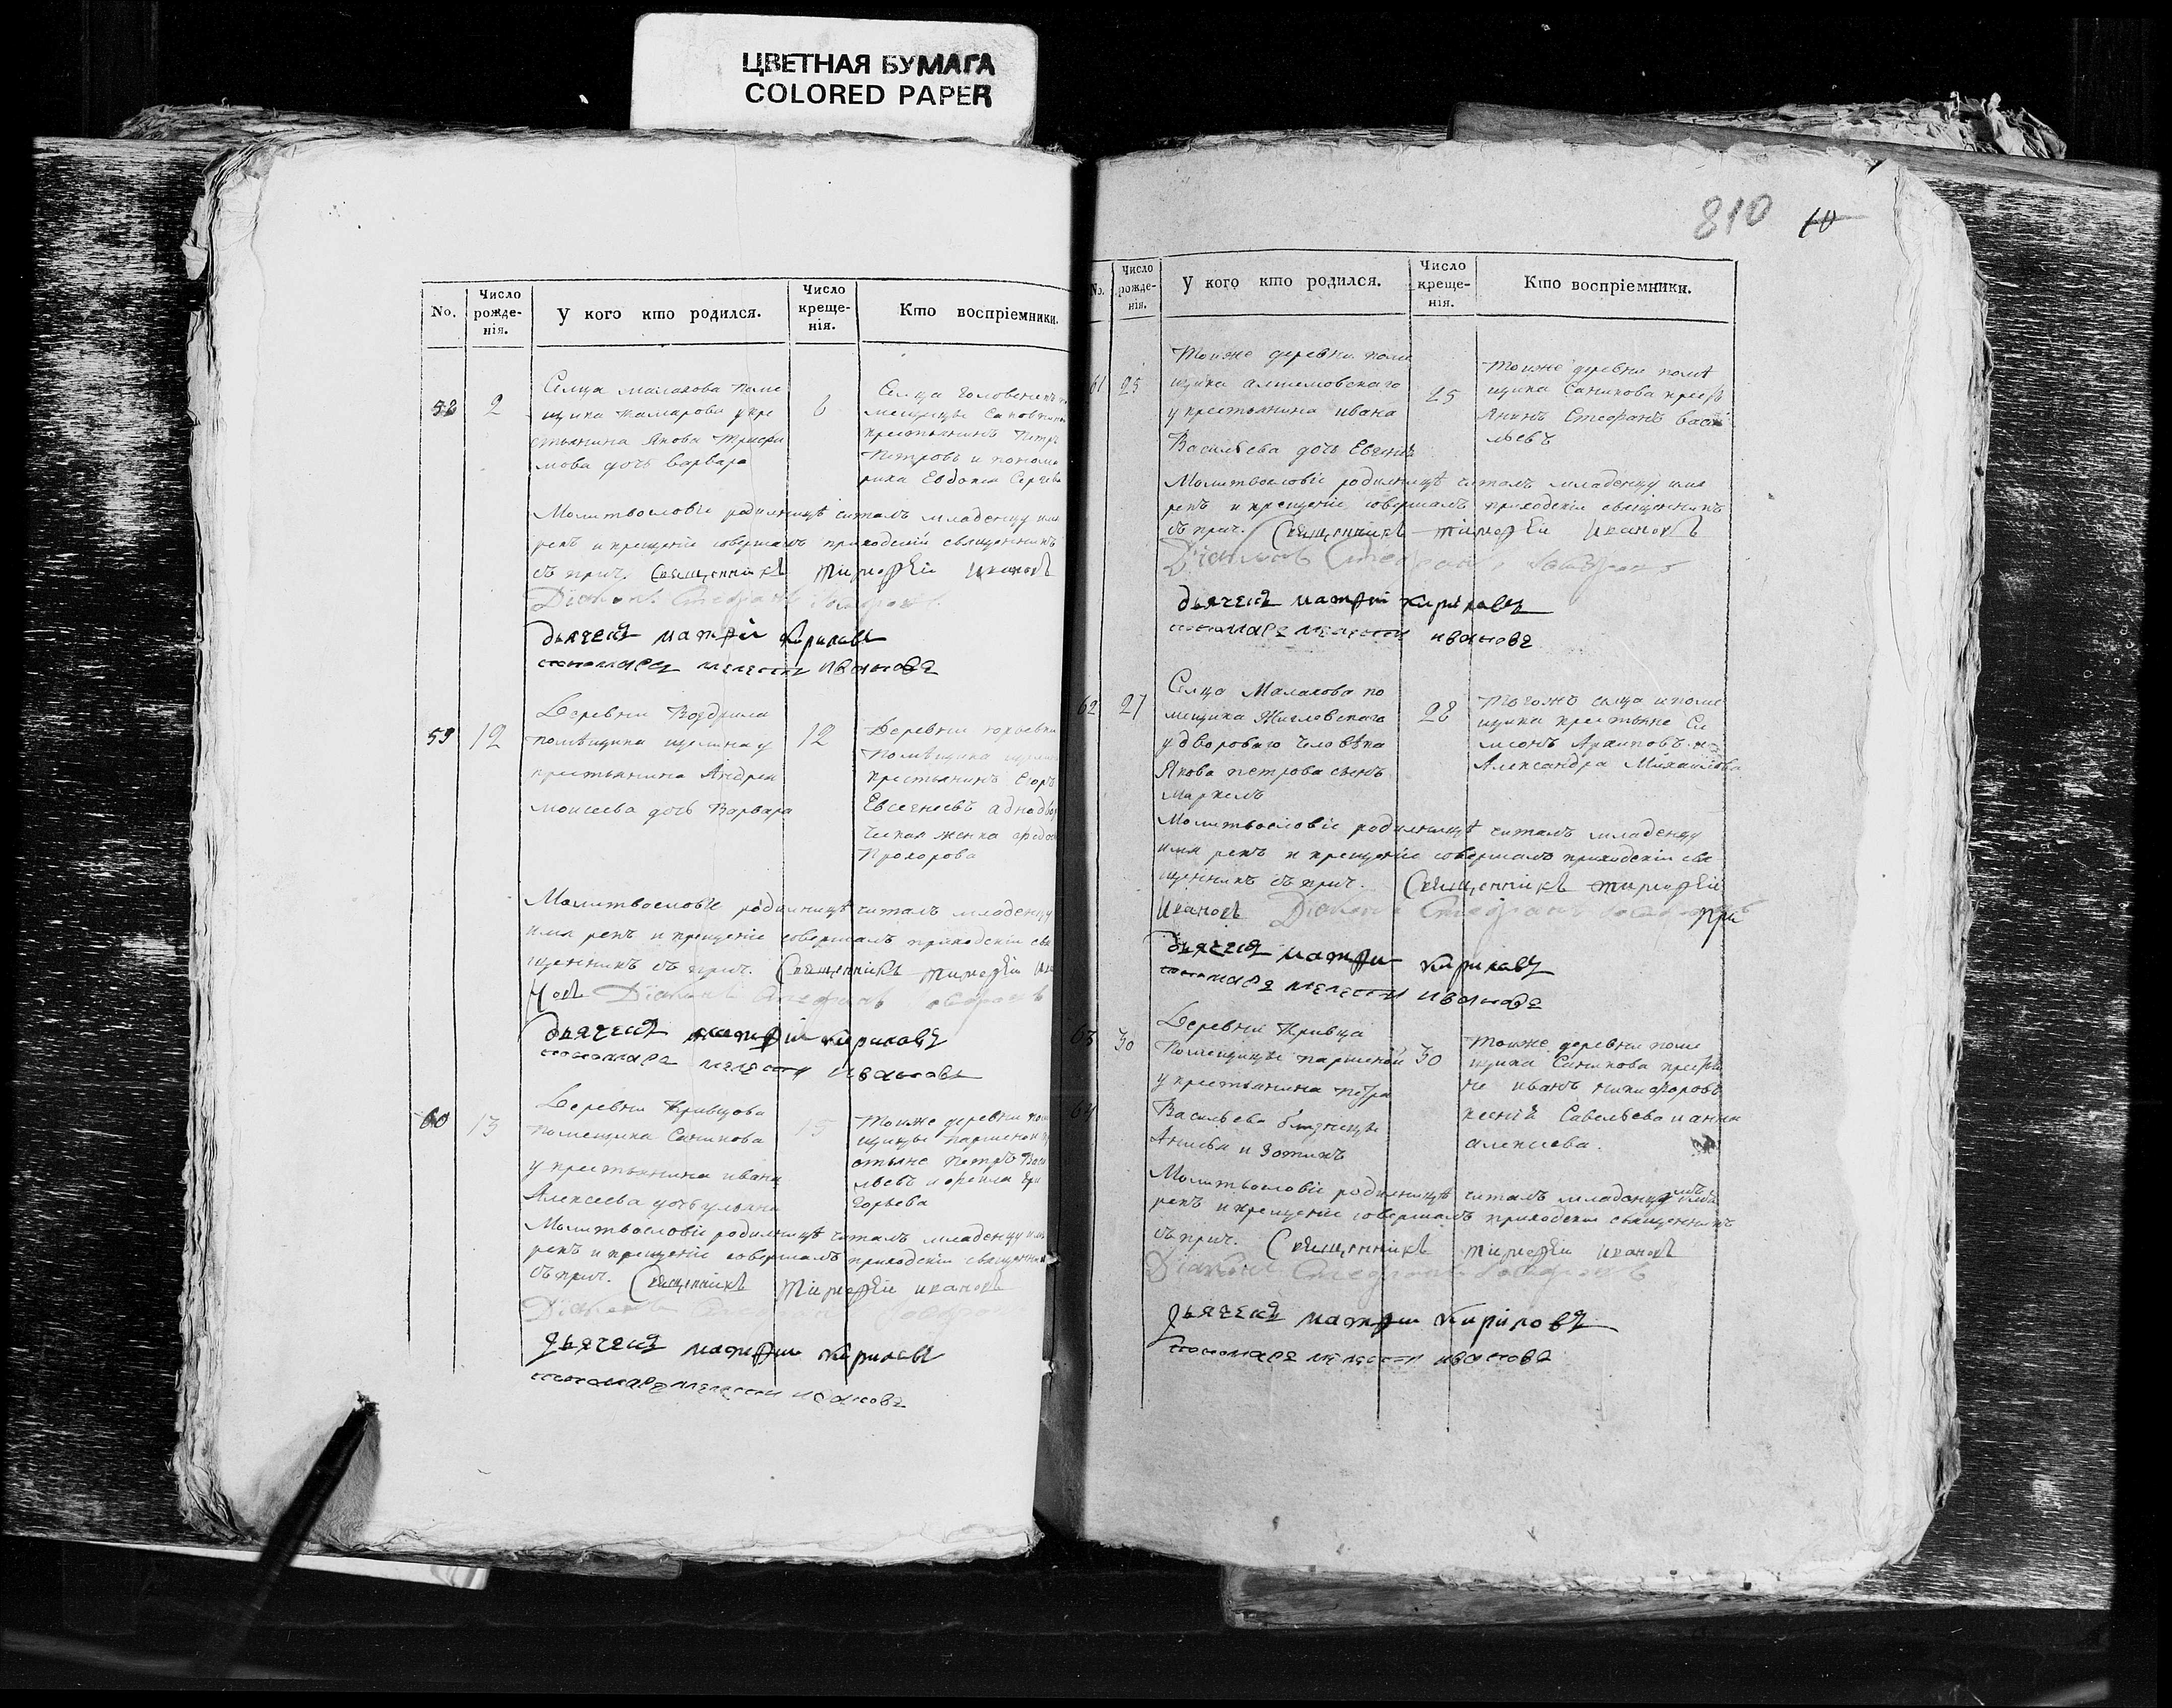 ЦВЕТНАЯ БУМАГА
COLORED PAPER
No.
Число рожде-нія.
У кого кто родился.
Число креще-нія.
Кто воспріемники.
58
2
Селца Малахова поме
щика Комарова у кре
стьянина Якова Трифи
мова дочь Варвара
6
Селца
крестьянинъ Петръ
Петровъ и понома
риха Евдокия Сергева
Молитвословіе родилницѣ читалъ младенцу имя
рекъ и крещеніе совершалъ приходскій священникъ
съ прич. Священникъ Тимофѣй Ивановъ
Діаконъ Стефанъ
дьячекъ Матфій Кириловъ
пономарь Мелетій Ивановъ
59
12
Деревни
помѣщика
крестьянина Андрея
Моисеева дочь Варвара
12
Деревни
помѣщика
крестьянинъ Егоръ
Евсегнеевъ аднадвор
ческая женка
Прохорова
Молитвословіе родилницѣ читалъ младенцу
имя рекъ и крещеніе совершалъ приходскій свя
щенникъ съ прич. Священникъ Тимофѣй Ива
новъ Діаконъ Стефанъ
дьячекъ Матфій Кириловъ
пономарь Мелетій Ивановъ
60
13
Деревни Кривцова
помещика Саникова
у крестьянина Ивана
Алексеева дочь Ульяна
15
Тоиже деревни поме
щицы Паршеной кре
стьяне Петръ Васи
льевъ и Ирина Гри
горьева
Молитвословіе родилницѣ читалъ младенцу имя
рекъ и крещеніе совершалъ приходскій священникъ
съ прич. Священникъ Тимофѣй Ивановъ
Діаконъ
дьячекъ Матфій Кириловъ
пономарь Мелетій Ивановъ
810 10
No.
Число рожде-нія.
У кого кто родился.
Число креще-нія.
Кто воспріемники.
61
25
Тоиже деревни поме
щика
у крестьянина Ивана
Васильева дочь Евгения
25
Тоиже деревни помѣ
щика Саникова крест
янинъ Стефанъ Васи
льевъ
Молитвословіе родилницѣ читалъ младенцу имя
рекъ и крещеніе совершалъ приходскій священникъ
съ прич. Священникъ Тимофѣй Ивановъ
Діаконъ Стефанъ
дьячекъ Матфій Кириловъ
пономарь Мелетій Ивановъ
62
27
Селца Малахова по
мещика
у дворовато человѣка
Якова Петрова сынъ
Маркелъ
28
Тогожъ селца и поме
щика крестьяне Си
меонъ и
Александра Михаилова
Молитвословіе родилницѣ читалъ младенцу
имя рекъ и крещеніе совершалъ приходскій свя
щенникъ съ прич. Священникъ Тимофѣй
Ивановъ Діаконъ Стефанъ
при
дьячекъ Матфій Кириловъ
пономарь Мелетій Ивановъ
63
30
Деревни Кривца
помещицы Паршеной
у крестьянина Петра
64
Васильева близнецы
Анисья и Зотикъ
30
Тоиже деревни поме
щика Саникова крестья
не Иванъ Никифоровъ
Савельева и Анна
Алексеева.
Молитвословіе родилницѣ читалъ младенцу имя
рекъ и крещеніе совершалъ приходскій священникъ
съ прич. Священникъ Тимофѣй Ивановъ
Діаконъ Стефанъ
дьячекъ Матфій Кириловъ
пономарь Мелетій Ивановъ